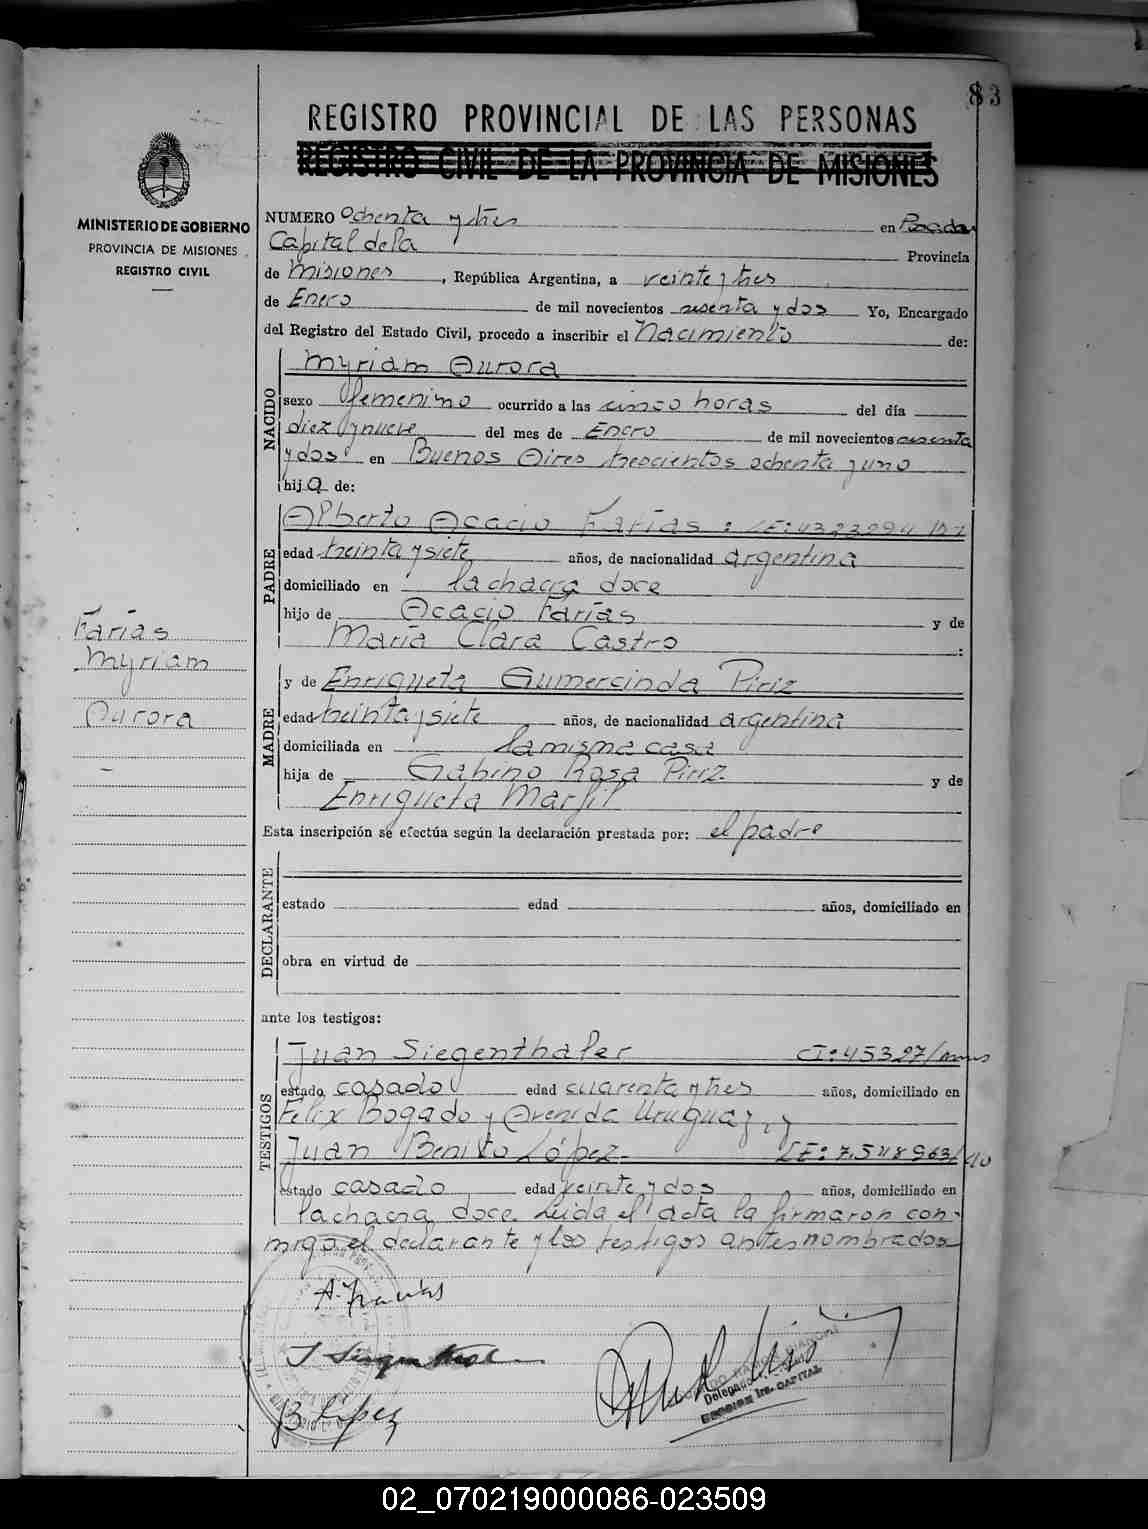 83
REGISTRO PROVINCIAL DE LAS PERSONAS
REGISTRO CIVIL DE LA PROVINCIA DE MISIONES
MINISTERIO DE GOBIERNO
PROVINCIA DE MISIONES
REGISTRO CIVIL
NUMERO Ochenta y tres en Posadas
Capital de la Provincia
de Misiones, República Argentina, a veinte y tres
de Enero de mil novecientos sesenta y dos Yo, Encargado
del Registro del Estado Civil, procedo a inscribir el Nacimiento de:
NACIDO
Myriam Aurora
sexo femenino ocurrido a las cinco horas del día
diez y nueve del mes de Enero de mil novecientos sesenta
y dos en Buenos Aires trescientos ochenta y uno
hija de:
PADRE
Alberto Acacio Farías: LE: 4323294
edad treinta y siete años, de nacionalidad argentina
domiciliado en la chacra doce
hijo de Acacio Farías y de
María Clara Castro :
Farías
Myriam
Aurora
MADRE
y de Enriqueta Gumersinda Piriz
edad treinta y siete años, de nacionalidad argentina
domiciliada en la misma casa
hija de Gabino Rosa Piriz y de
Enriqueta Marfil
Esta inscripción se efectúa según la declaración prestada por: el padre
DECLARANTE
estado edad años, domiciliado en
obra en virtud de
ante los testigos:
TESTIGOS
Juan Siegenthaler CI: 45327/mnes
estado casado edad cuarenta y tres años, domiciliado en
Felix Bogado y Avenida Uruguay, y
Juan Benito López- LE: 7.548963/
estado casado edad veinte y dos años, domiciliado en
la chacra doce. Leida el acta la firmaron con-
migo el declarante y los testigos antes nombrados
A. Farías
J Siegenthaler
B López
Delegado
SECCION 1ra. CAPITAL
02_070219000086-023509